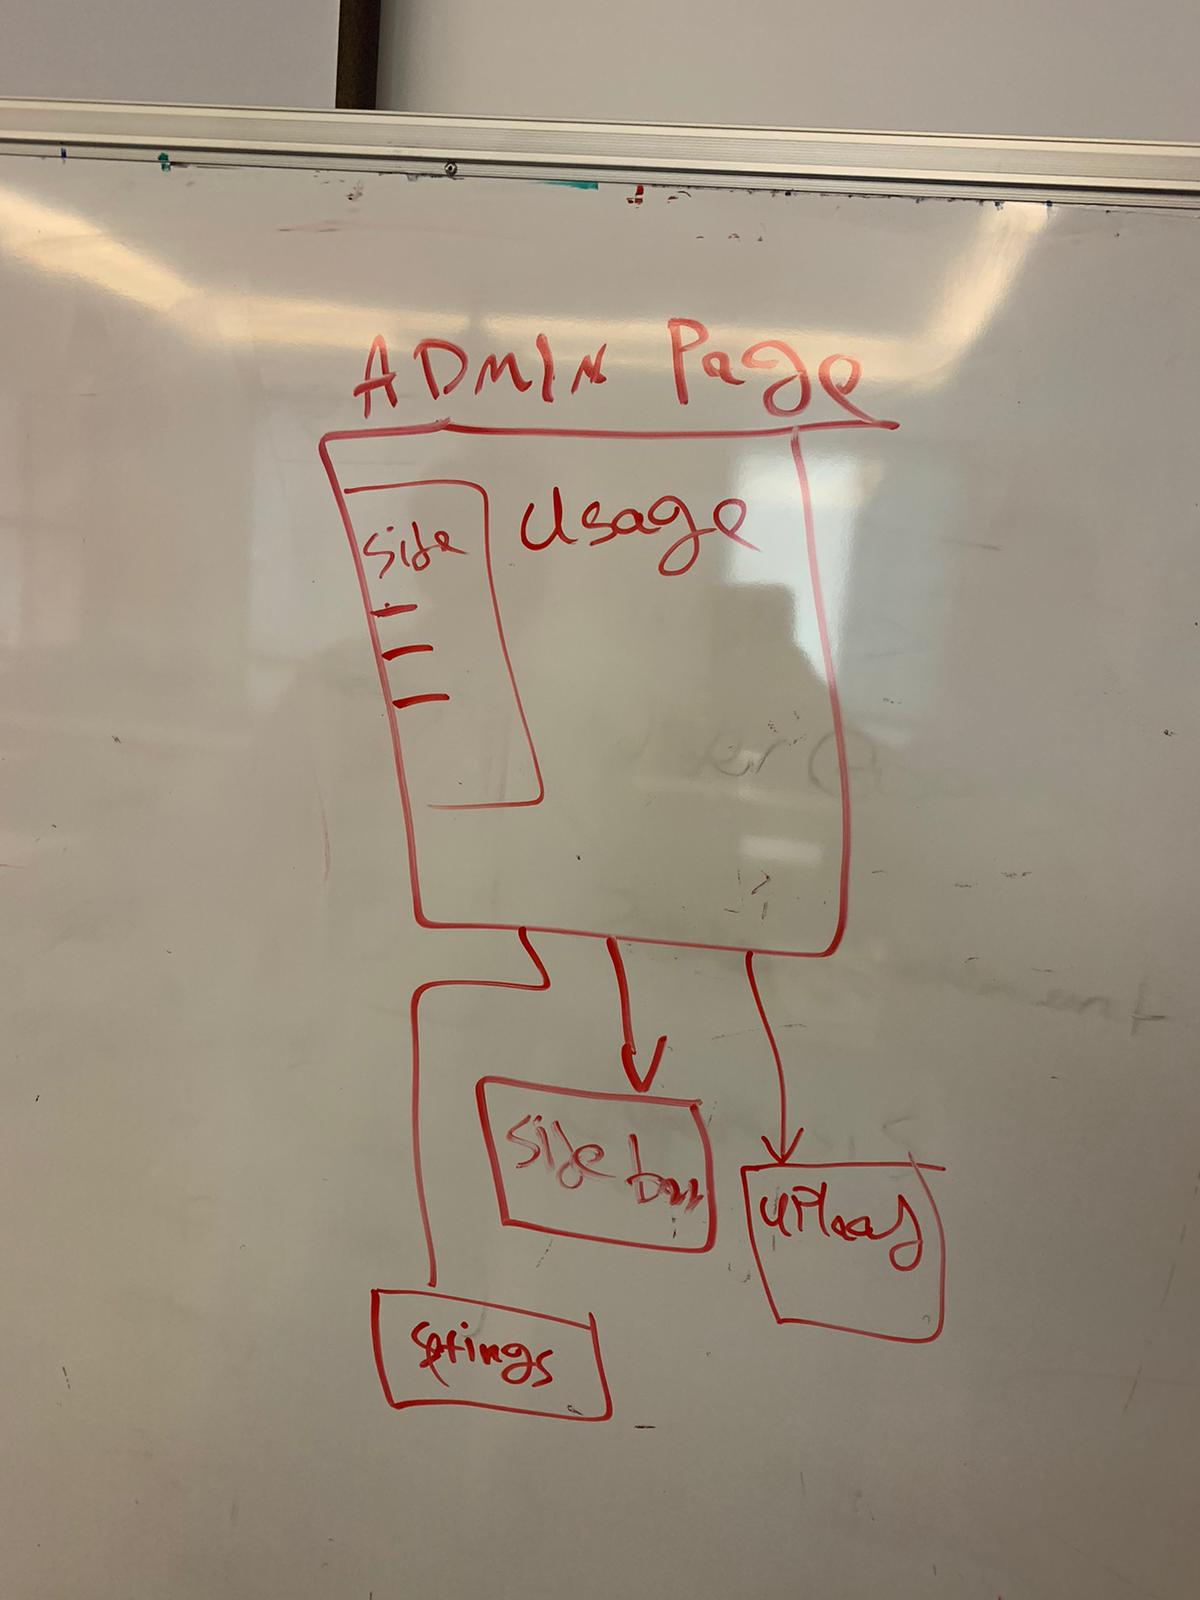 ADMIN Page
Usage
Side
Side bar
upload
Settings